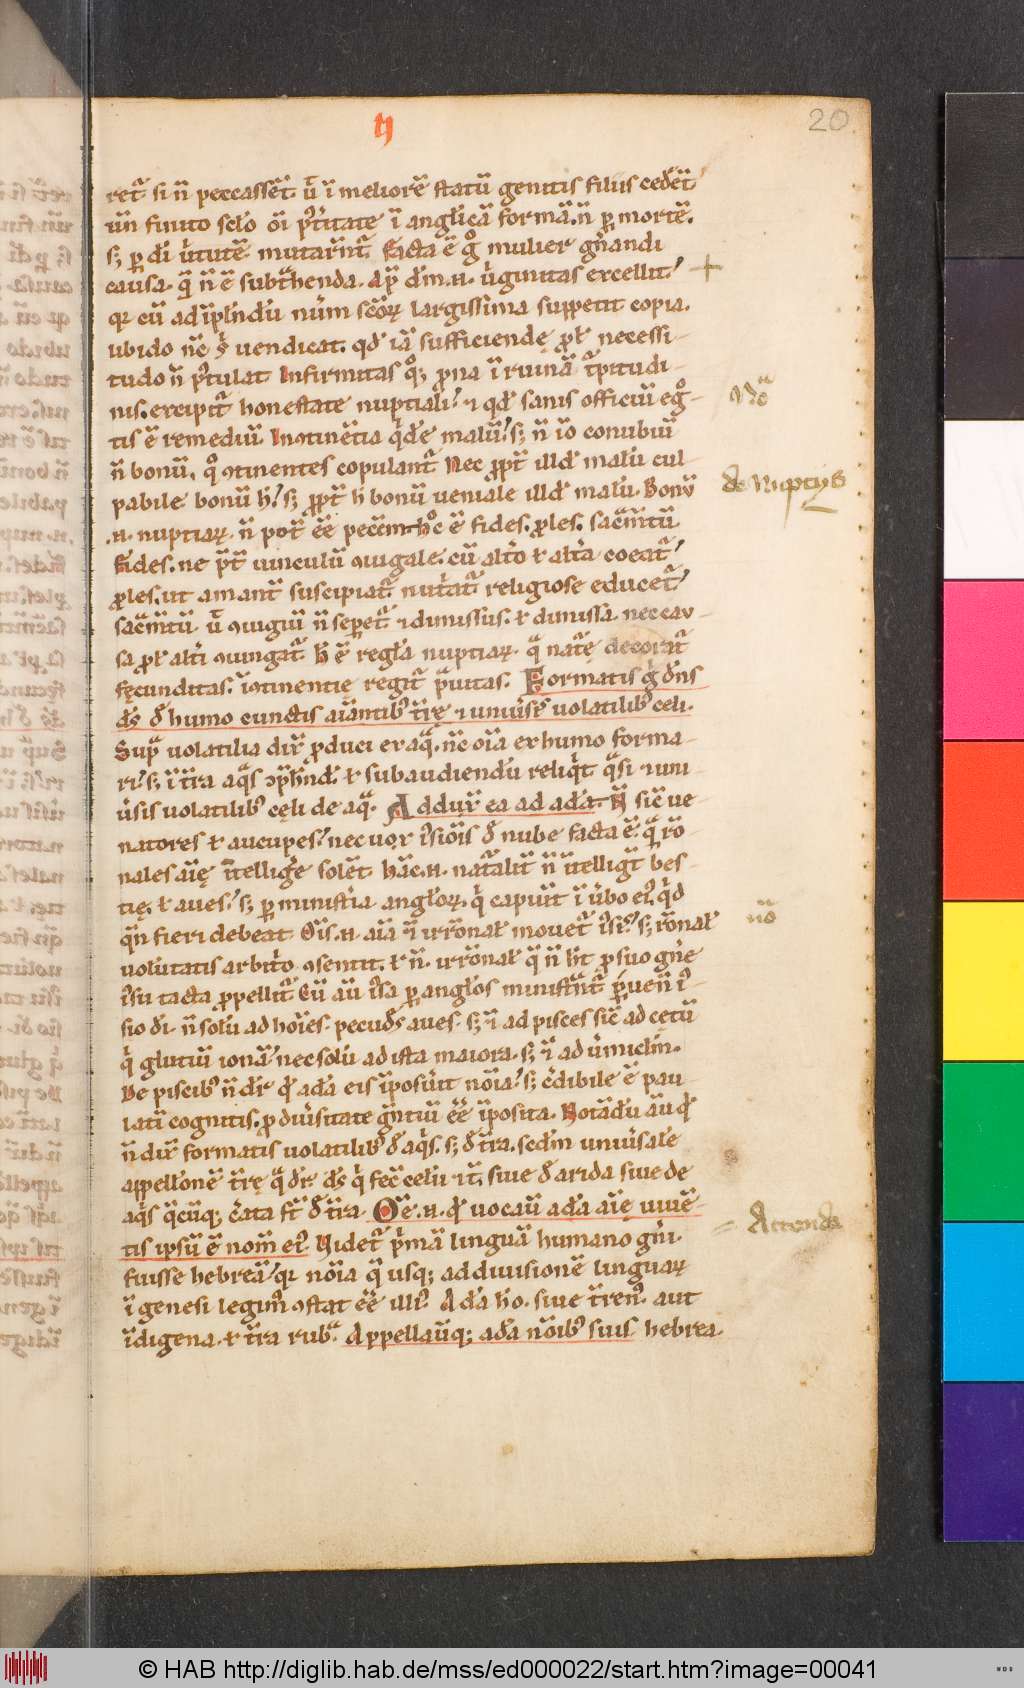 ij
20
ret̃ si ñ peccassẽt. ũ ĩ meliorẽ statũ genitis filiis cedẽt
ũn finito sclo õi ptitate ĩ anglicã formã. ñ p mortẽ.
s; p di ututẽ mutarñt. Facta ẽ g mulier gñandi
causa. q ñ ẽ subthenda. Ap dm. n. uginitas excellit.
qr cũ ad iplendũ num scõr largissima suppetit copia.
ubido nc s uendicat. qd iã sufficiende pl necessi-
tudo ñ ptulat. Infirmitas q; prona ĩ ruinã tpitudi-
nis. excipit honestate nuptiali. & qd sanis officiũ eg-
tis ẽ remediũ. Incotinẽtia qde malũ. s; ñ io conubiũ
ñ bonũ. q otinentes copulant. Nec ppt illd malũ cul-
pabile bonũ h. s; ppt h bonũ ueniale illd malũ. Bonũ
.n. nuptiar. ñ pot ẽe peccm. hoc ẽ fides. ples. sacmtũ
Fides. ne pt uinculũ iugale. cũ alto & alta coeat.
ples. ut amant suscipiat. nutat religiose educet.
sacmtũ ũ iugiũ ñ sepet. & dimissus. & dimissa. nec cau-
sa pl alti iungat. h ẽ regla nuptiar. q natę decorat
fęcunditas. icotinentię regit puitas. Formatis g dns
ds d humo cunctis aiantib tre & uniuse uolatilib celi.
Sup uolatilia dir pduci ex aq. nc oia ex humo forma-
ri. s; ĩ tra aqs phnd. & subaudiendũ reliqt qsi & uni-
usis uolatilib celi de aq. Addux ea ad adã. Ñ sic ue-
natores & aucupes. nec uox isiois d nube facta ẽ. q ro-
nales aię ĩtellige solẽt. hãc. n. natalit ñ ĩtelligt bes-
tię. & aues. s; p ministia anglor. q capiut ĩ ubo ei. qd
qñ fieri debeat. Ois. n. aia & irronal mouet isu. s; ronal
uolutatis arbitio sentit. & ñ. irronal q ñ ht p suo gne
isu tacta ppellit. Cũ aũ isa p anglos ministnt. puen i-
sio di. ñ solũ ad hoies. pecuds aues. s; & ad pisces sic ad cetũ
q glutiũ ionã. nec solũ ad ista maiora. s; & ad umiclm.
De piscib ñ dir qd adã eis ĩposuit noia. s; cdibile ẽ pau-
lati cognitis. p diusitate gntiũ ẽe ĩposita. Notadũ aũ qd
ñ dir formatis uolatilib d aqs. s; d tra. sedm uniusale
appellonẽ tre q dr. ds q fec celũ & t. siue d arida siue de
aqs qcũq; ceata st d tra. Oẽ. n. qd uocaũ adã aię uiuẽ-
tis ipsũ ẽ nom ei. Videt pmã linguã humano gni
fuisse hebreã. qr noia q usq; ad diuisionẽ linguar
ĩ genesi legim ostat ẽe illi. Adã ho. siue tren. aut
ĩdigena. & tra rub. Appellauq; adã noib suis hebrea.
de Nuptijs
Attenda
© HAB http://diglib.hab.de/mss/ed000022/start.htm?image=00041